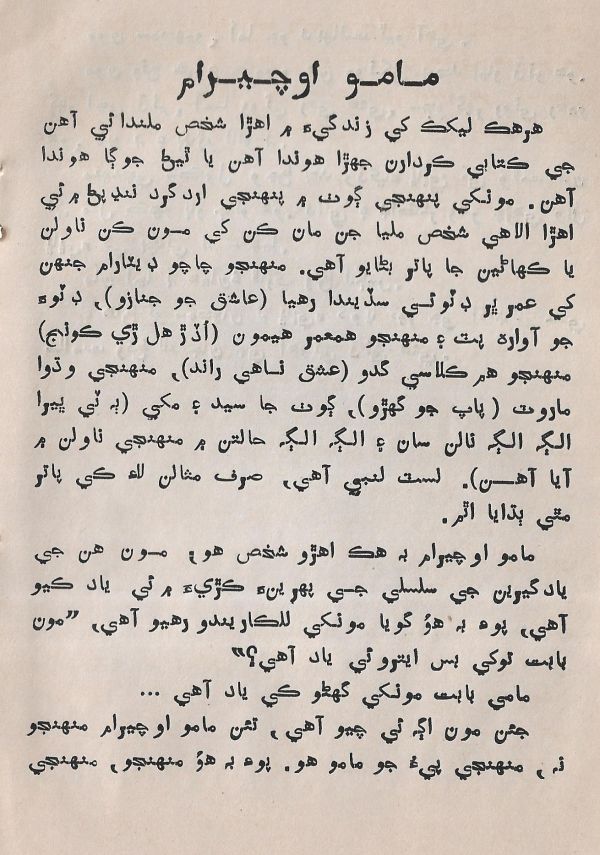 مامو اوچيرام
هرهڪ ليکڪ کي زندگيءَ ۾ اهڙا شخص ملندائي آهن
جي ڪتابي ڪردارن جهڙا هوندا آهن يا ٿيڻ جوڳا هوندا
آهن. مونکي پنهنجي ڳوٺ ۾ پنهنجي اردگرد ننڍپڻ ۾ ئي
اهڙا الاهي شخص مليا جن مان ڪن کي مون ڪن ناولن
يا ڪهاڻين جا پاتر بڻايو آهي. منهنجو چاچو ڊيٽارام جنهن
کي عمر ڀر ڊٽوئي سڏيندا رهيا (عاشق جو جنازو)، ڊٽوءَ
جو آواره پٽ ۽ منهنجو همعمر هيمون (اُڏڙ هل ڙي ڪونج)
منهنجو هم ڪلاسي گدو (عشق ناهي راند)، منهنجي وڌوا
ماروٽ (پاپ جو گهڙو)، ڳوٺ جا سيد ۽ مکي (ٻه ٽي ڀيرا
الڳ الڳ نالن سان ۽ الڳ الڳ حالتن ۾ منهنجي ناولن ۾
آيا آهن). لسٽ لنبي آهي، صرف مثالن لاءِ ڪي پاتر
مٿي ٻڌايا اٿم.
مامو اوچيرام به هڪ اهڙو شخص هو؛ مون هن جي
يادگيرين جي سلسلي جي پهرينءَ ڪڙيءَ ۾ ئي ياد ڪيو
آهي، پوءِ به هوُ گويا مونکي للڪاريندو رهيو آهي، ”مون
بابت توکي بس ايتروئي ياد آهي؟“
مامي بابت مونکي گهڻو ڪي ياد آهي ...
جئن مون اڳ ئي چيو آهي، تئن مامو اوچيرام منهنجو
نه، منهنجي پيءُ جو مامو هو. پوءِ به هوُ منهنجو، منهنجي